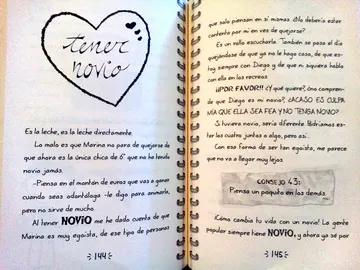 tener
novio
Es la leche, es la leche directamente.
Lo malo es que Marina no para de quejarse de
que ahora es la única chica de 6º que no ha tenido
novio jamás.
–Piensa en el montón de euros que vas a ganar
cuando seas odontóloga –le digo para animarla,
pero no sirve de mucho.
Al tener NOVIO me he dado cuenta de que
Marina es muy egoísta, de ese tipo de personas
144
que solo piensan en sí mismas. ¿No debería estar
contenta por mí en vez de quejarse?
Es un rollo escucharla. También se pasa el día
quejándose de que ya no le hago caso, de que es-
toy siempre con Diego y de que ni siquiera hablo
con ella en los recreos.
¡¡POR FAVOR!! ¿Y qué quiere?, ¿no compren-
de que Diego es mi novio?, ¿ACASO ES CULPA
MÍA QUE ELLA SEA FEA Y NO TENGA NOVIO?
Si tuviera novio, sería diferente. Podríamos es-
tar los cuatro juntos o algo, pero así...
Con esa forma de ser tan egoísta, me parece
que no va a llegar muy lejos.
CONSEJO 43:
Piensa un poquito en los demás.
¡Cómo cambia tu vida con un novio! La gente
popular siempre tiene NOVIOS, y ahora ya sé por
145